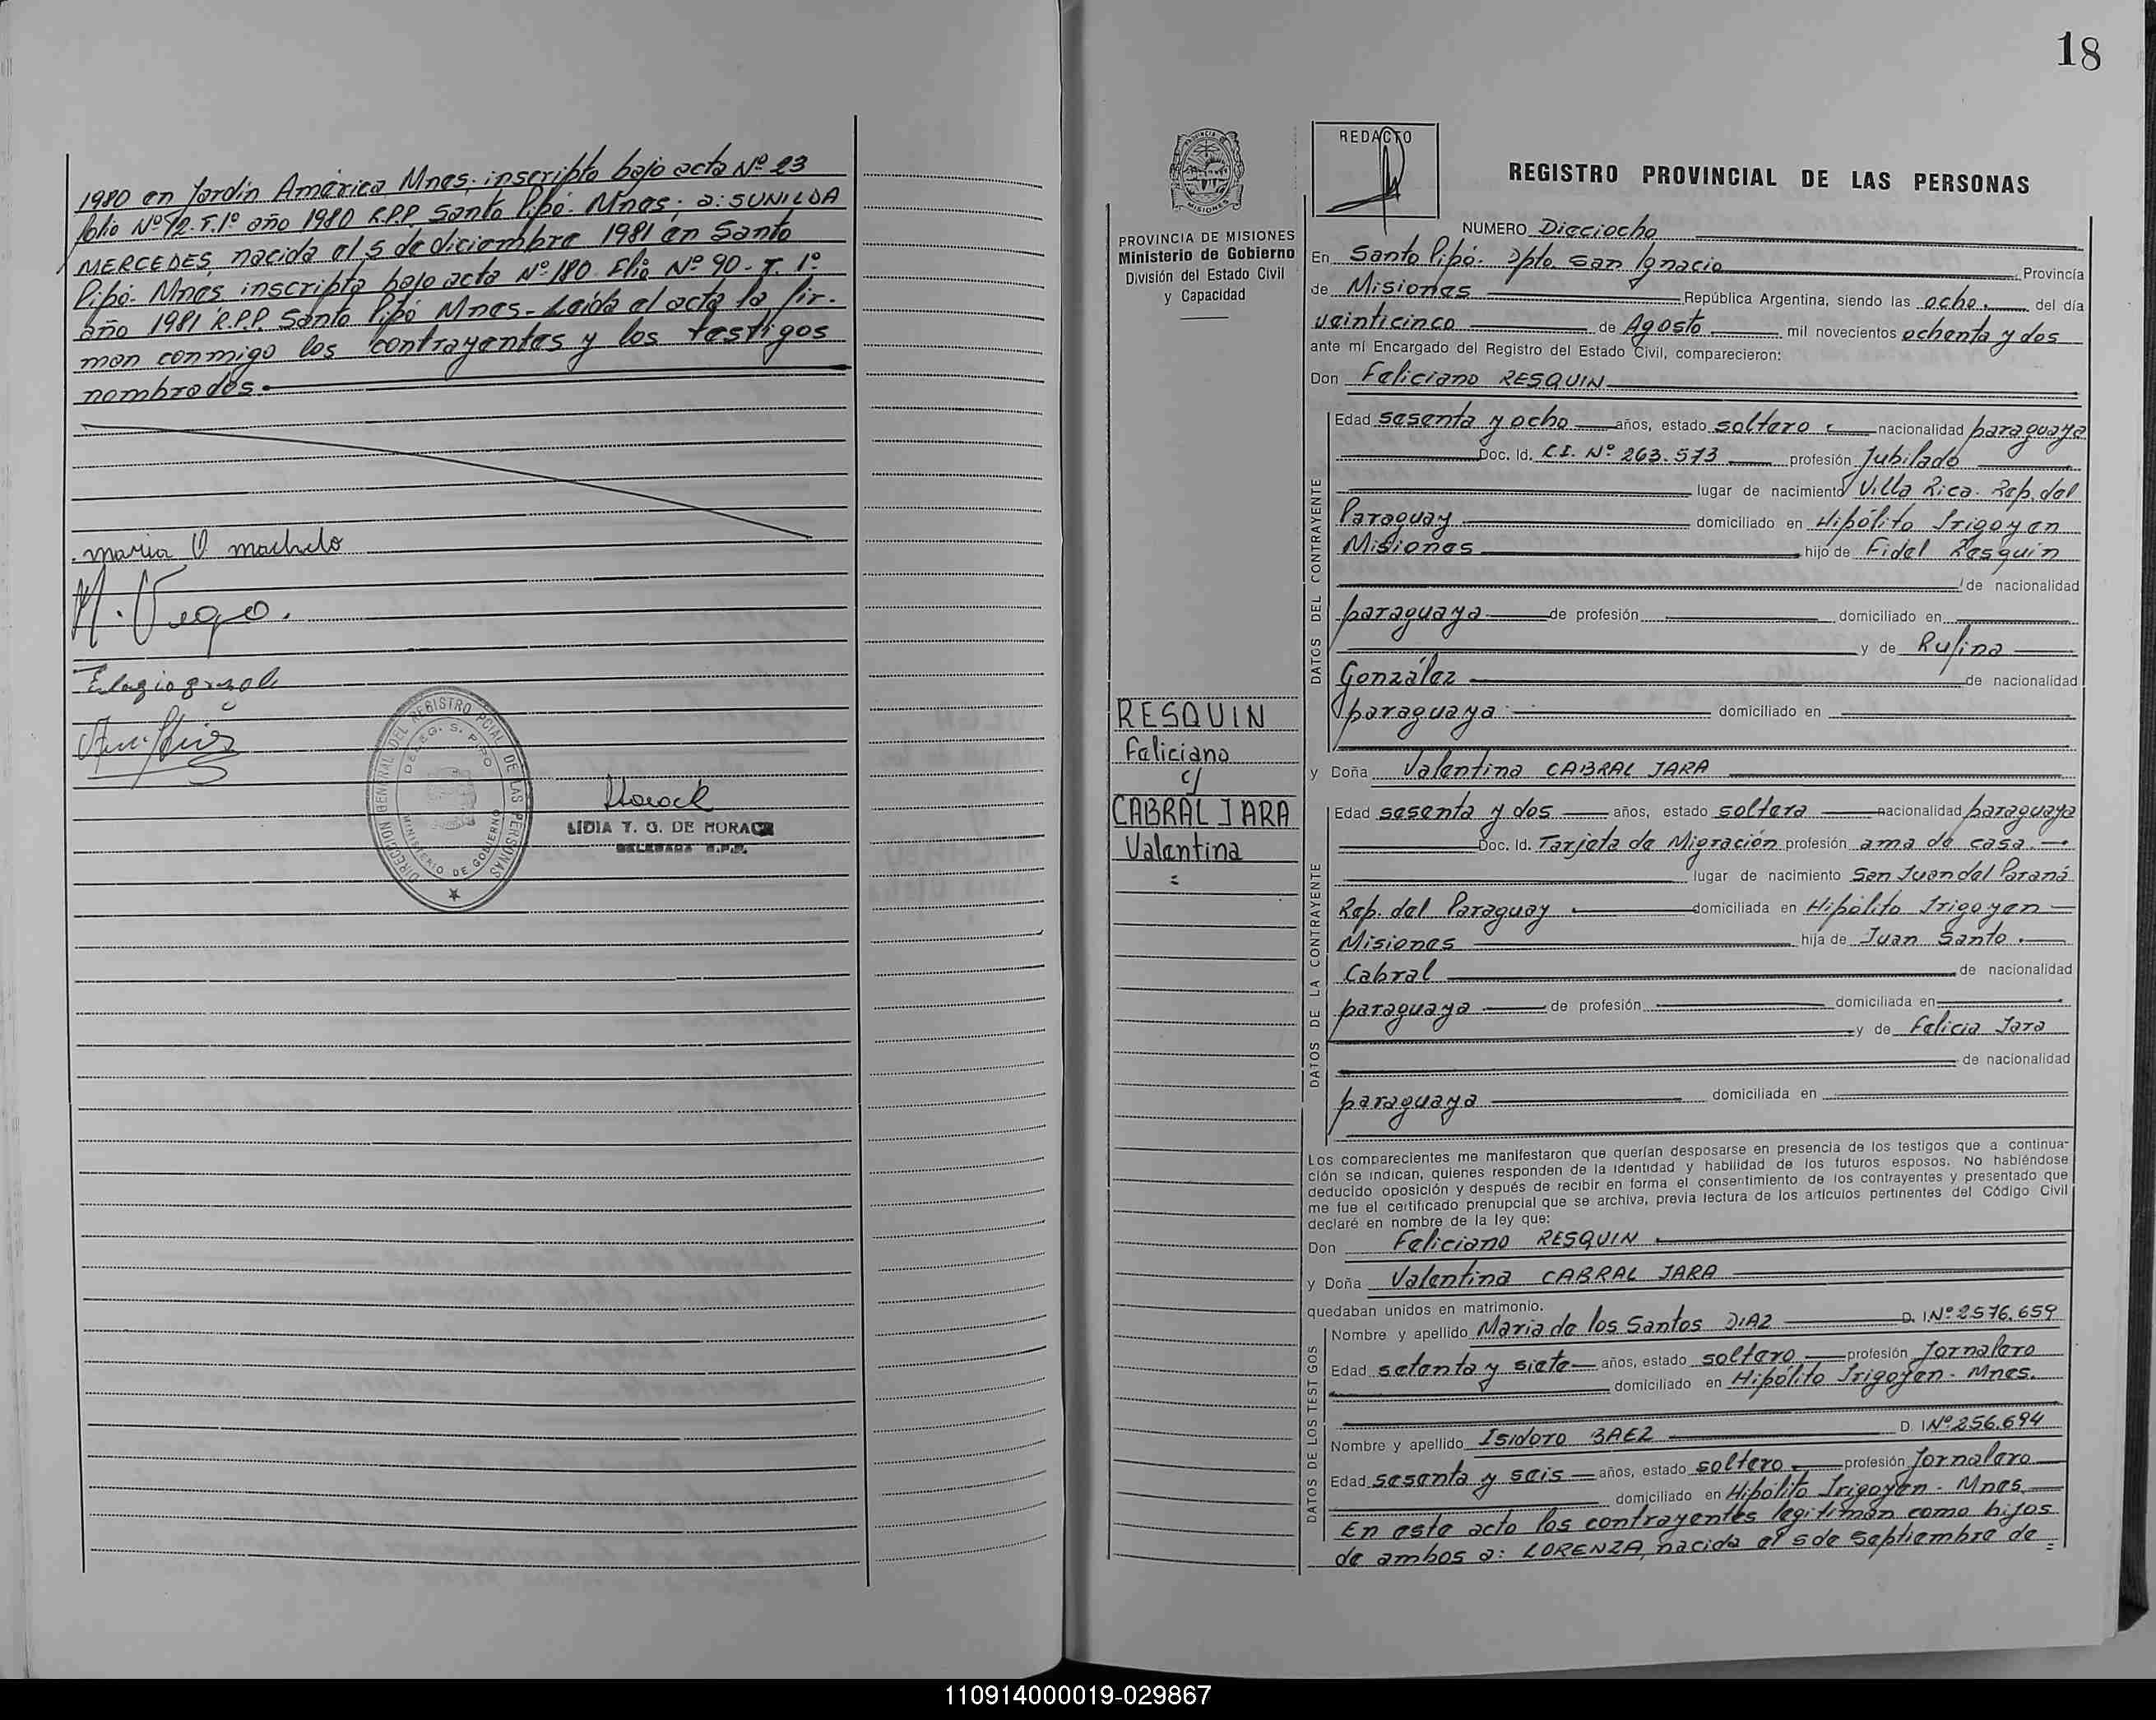 1980 en Jardín América Mnes; inscripta bajo acta Nº 23
folio Nº 12. T. 1º año 1980 R.P.P. Santo Pipó. Mnes; a: SUNILDA
MERCEDES, nacida el 5 de diciembre 1981 en Santo
Pipó. Mnes inscripta bajo acta Nº 180 Flio Nº 90. T. 1º
año 1981 R.P.P. Santo Pipó Mnes - Leída el acta la fir-
man conmigo los contrayentes y los testigos
nombrados.
maria O machelo
Lidia T. G. DE HORACK
DELEGADA R.P.P.
DIRECCION GENERAL DEL REGISTRO PCIAL DE LAS PERSONAS
DELEG. S. PIPO
MINISTERIO DE GOBIERNO
18
PROVINCIA DE MISIONES
Ministerio de Gobierno
División del Estado Civil
y Capacidad
RESQUIN
Feliciano
c/
CABRAL JARA
Valentina
=
REDACTO
REGISTRO PROVINCIAL DE LAS PERSONAS
NUMERO Dieciocho
En Santo Pipó. Dpto. San Ignacio Provincia
de Misiones República Argentina, siendo las ocho. del día
veinticinco de Agosto mil novecientos ochenta y dos
ante mí Encargado del Registro del Estado Civil, comparecieron:
Don Feliciano RESQUIN
DATOS DEL CONTRAYENTE
Edad sesenta y ocho años, estado soltero nacionalidad paraguaya
Doc. Id. C.I. Nº 263.573 profesión Jubilado
lugar de nacimiento Villa Rica. Rep. del
Paraguay domiciliado en Hipólito Irigoyen
Misiones hijo de Fidel Resquin
de nacionalidad
paraguaya de profesión domiciliado en
y de Rufina
González de nacionalidad
paraguaya domiciliado en
y Doña Valentina CABRAL JARA
DATOS DE LA CONTRAYENTE
Edad sesenta y dos años, estado soltera nacionalidad paraguaya
Doc. Id. Tarjeta de Migración profesión ama de casa.
lugar de nacimiento San Juan del Paraná
Rep. del Paraguay domiciliada en Hipólito Irigoyen
Misiones hija de Juan Santo
Cabral de nacionalidad
paraguaya de profesión domiciliada en
y de Felicia Jara
de nacionalidad
paraguaya domiciliada en
Los comparecientes me manifestaron que querían desposarse en presencia de los testigos que a continua-
ción se indican, quienes responden de la identidad y habilidad de los futuros esposos. No habiéndose
deducido oposición y después de recibir en forma el consentimiento de los contrayentes y presentado que
me fue el certificado prenupcial que se archiva, previa lectura de los artículos pertinentes del Código Civil
declaré en nombre de la ley que:
Don Feliciano RESQUIN
y Doña Valentina CABRAL JARA
quedaban unidos en matrimonio.
DATOS DE LOS TESTIGOS
Nombre y apellido Maria de los Santos DIAZ D. I.Nº 2576.659
Edad setenta y siete años, estado soltero profesión Jornalero
domiciliado en Hipólito Irigoyen - Mnes.
Nombre y apellido Isidoro BAEZ D. I.Nº 256.694
Edad sesenta y seis años, estado soltero profesión Jornalero
domiciliado en Hipólito Irigoyen - Mnes
En este acto los contrayentes legitiman como hijos
de ambos a: LORENZA, nacida el 5 de Septiembre de =
110914000019-029867